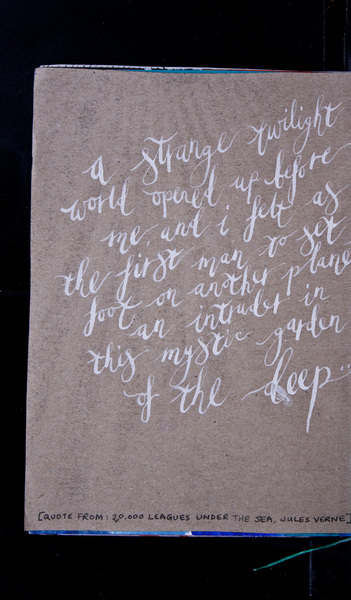 a strange twilight
world opened up before
me, and i felt as
the first man to set
foot on another plane
an intruder in
this mystic garden
of the deep...
[QUOTE FROM: 20,000 LEAGUES UNDER THE SEA, JULES VERNE]